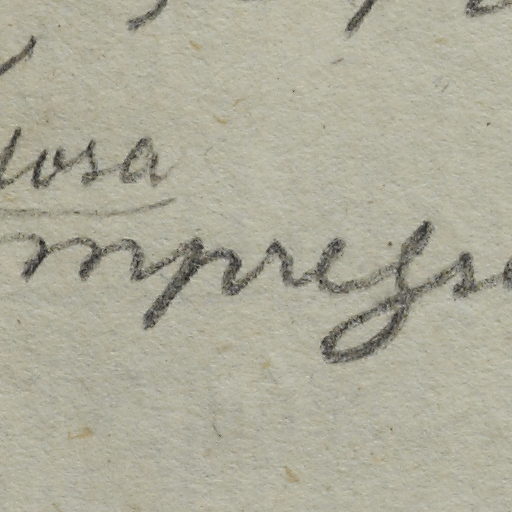 losa
mpress